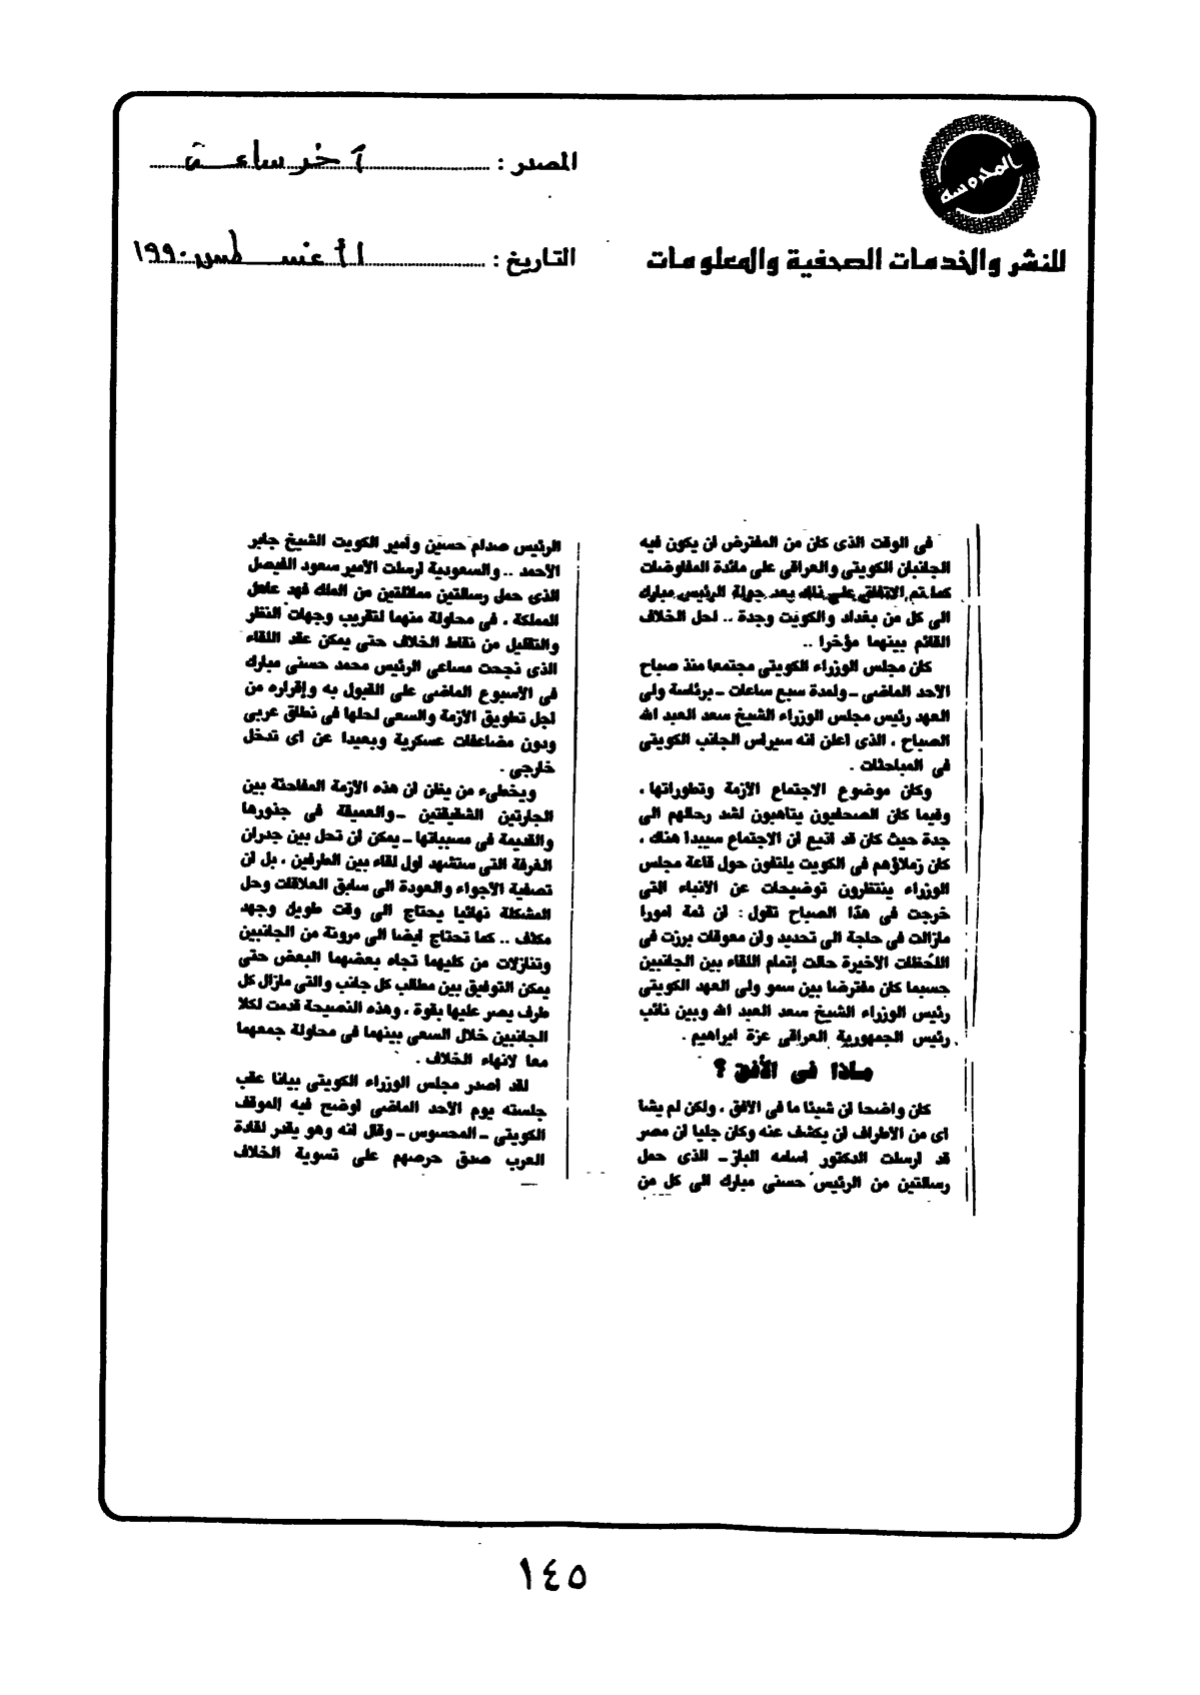 المحروسة
للنشر والخدمات الصحفية والمعلومات
المصدر : آخر ساعة
التاريخ : ١ أغسطس ١٩٩٠
فى الوقت الذى كان من المفترض ان يكون فيه
الجانبان الكويتى والعراقى على مائدة المفاوضات
كما تم الاتفاق على ذلك بعد جولة الرئيس مبارك
الى كل من بغداد والكويت وجدة .. لحل الخلاف
القائم بينهما مؤخرا ..
كان مجلس الوزراء الكويتى مجتمعا منذ صباح
الأحد الماضى ـ ولمدة سبع ساعات ـ برئاسة ولى
العهد رئيس مجلس الوزراء الشيخ سعد العبد الله
الصباح ، الذى اعلن انه سيراس الجانب الكويتى
فى المباحثات .
وكان موضوع الاجتماع الأزمة وتطوراتها ،
وفيما كان الصحفيون يتاهبون لشد رحالهم الى
جدة حيث كان قد اذيع ان الاجتماع سيبدا هناك ،
كان زملاؤهم فى الكويت يلتفون حول قاعة مجلس
الوزراء ينتظرون توضيحات عن الأنباء التى
خرجت فى هذا الصباح تقول : ان ثمة امورا
مازالت فى حاجة الى تحديد وان معوقات برزت فى
اللحظات الأخيرة حالت إتمام اللقاء بين الجانبين
حسبما كان مفترضا بين سمو ولى العهد الكويتى
رئيس الوزراء الشيخ سعد العبد الله وبين نائب
رئيس الجمهورية العراقى عزة ابراهيم .
ماذا فى الأفق ؟
كان واضحا ان شيئا ما فى الأفق ، ولكن لم يشا
اى من الأطراف ان يكشف عنه وكان جليا ان مصر
قد ارسلت الدكتور اسامه الباز ـ الذى حمل
رسالتين من الرئيس حسنى مبارك الى كل من
الرئيس صدام حسين وأمير الكويت الشيخ جابر
الأحمد .. والسعودية ارسلت الأمير سعود الفيصل
الذى حمل رسالتين مماثلتين من الملك فهد عاهل
المملكة ، فى محاولة منهما لتقريب وجهات النظر
والتقليل من نقاط الخلاف حتى يمكن عقد اللقاء
الذى نجحت مساعى الرئيس محمد حسنى مبارك
فى الأسبوع الماضى على القبول به وإقراره من
اجل تطويق الأزمة والسعى لحلها فى نطاق عربى
ودون مضاعفات عسكرية وبعيدا عن اى تدخل
خارجى .
ويخطىء من يظن ان هذه الأزمة المفاجئة بين
الجارتين الشقيقتين ـ والعميقة فى جذورها
والقديمة فى مسبباتها ـ يمكن ان تحل بين جدران
الغرفة التى ستشهد اول لقاء بين الطرفين ، بل ان
تصفية الأجواء والعودة الى سابق العلاقات وحل
المشكلة نهائيا يحتاج الى وقت طويل وجهد
مكثف .. كما تحتاج ايضا الى مرونة من الجانبين
وتنازلات من كليهما تجاه بعضهما البعض حتى
يمكن التوفيق بين مطالب كل جانب والتى مازال كل
طرف يصر عليها بقوة ، وهذه النصيحة قدمت لكلا
الجانبين خلال السعى بينهما فى محاولة جمعهما
معا لانهاء الخلاف .
لقد اصدر مجلس الوزراء الكويتى بيانا عقب
جلسته يوم الأحد الماضى اوضح فيه الموقف
الكويتى ـ المحسوس ـ وقال انه وهو يقدر لقادة
العرب صدق حرصهم على تسوية الخلاف
١٤٥